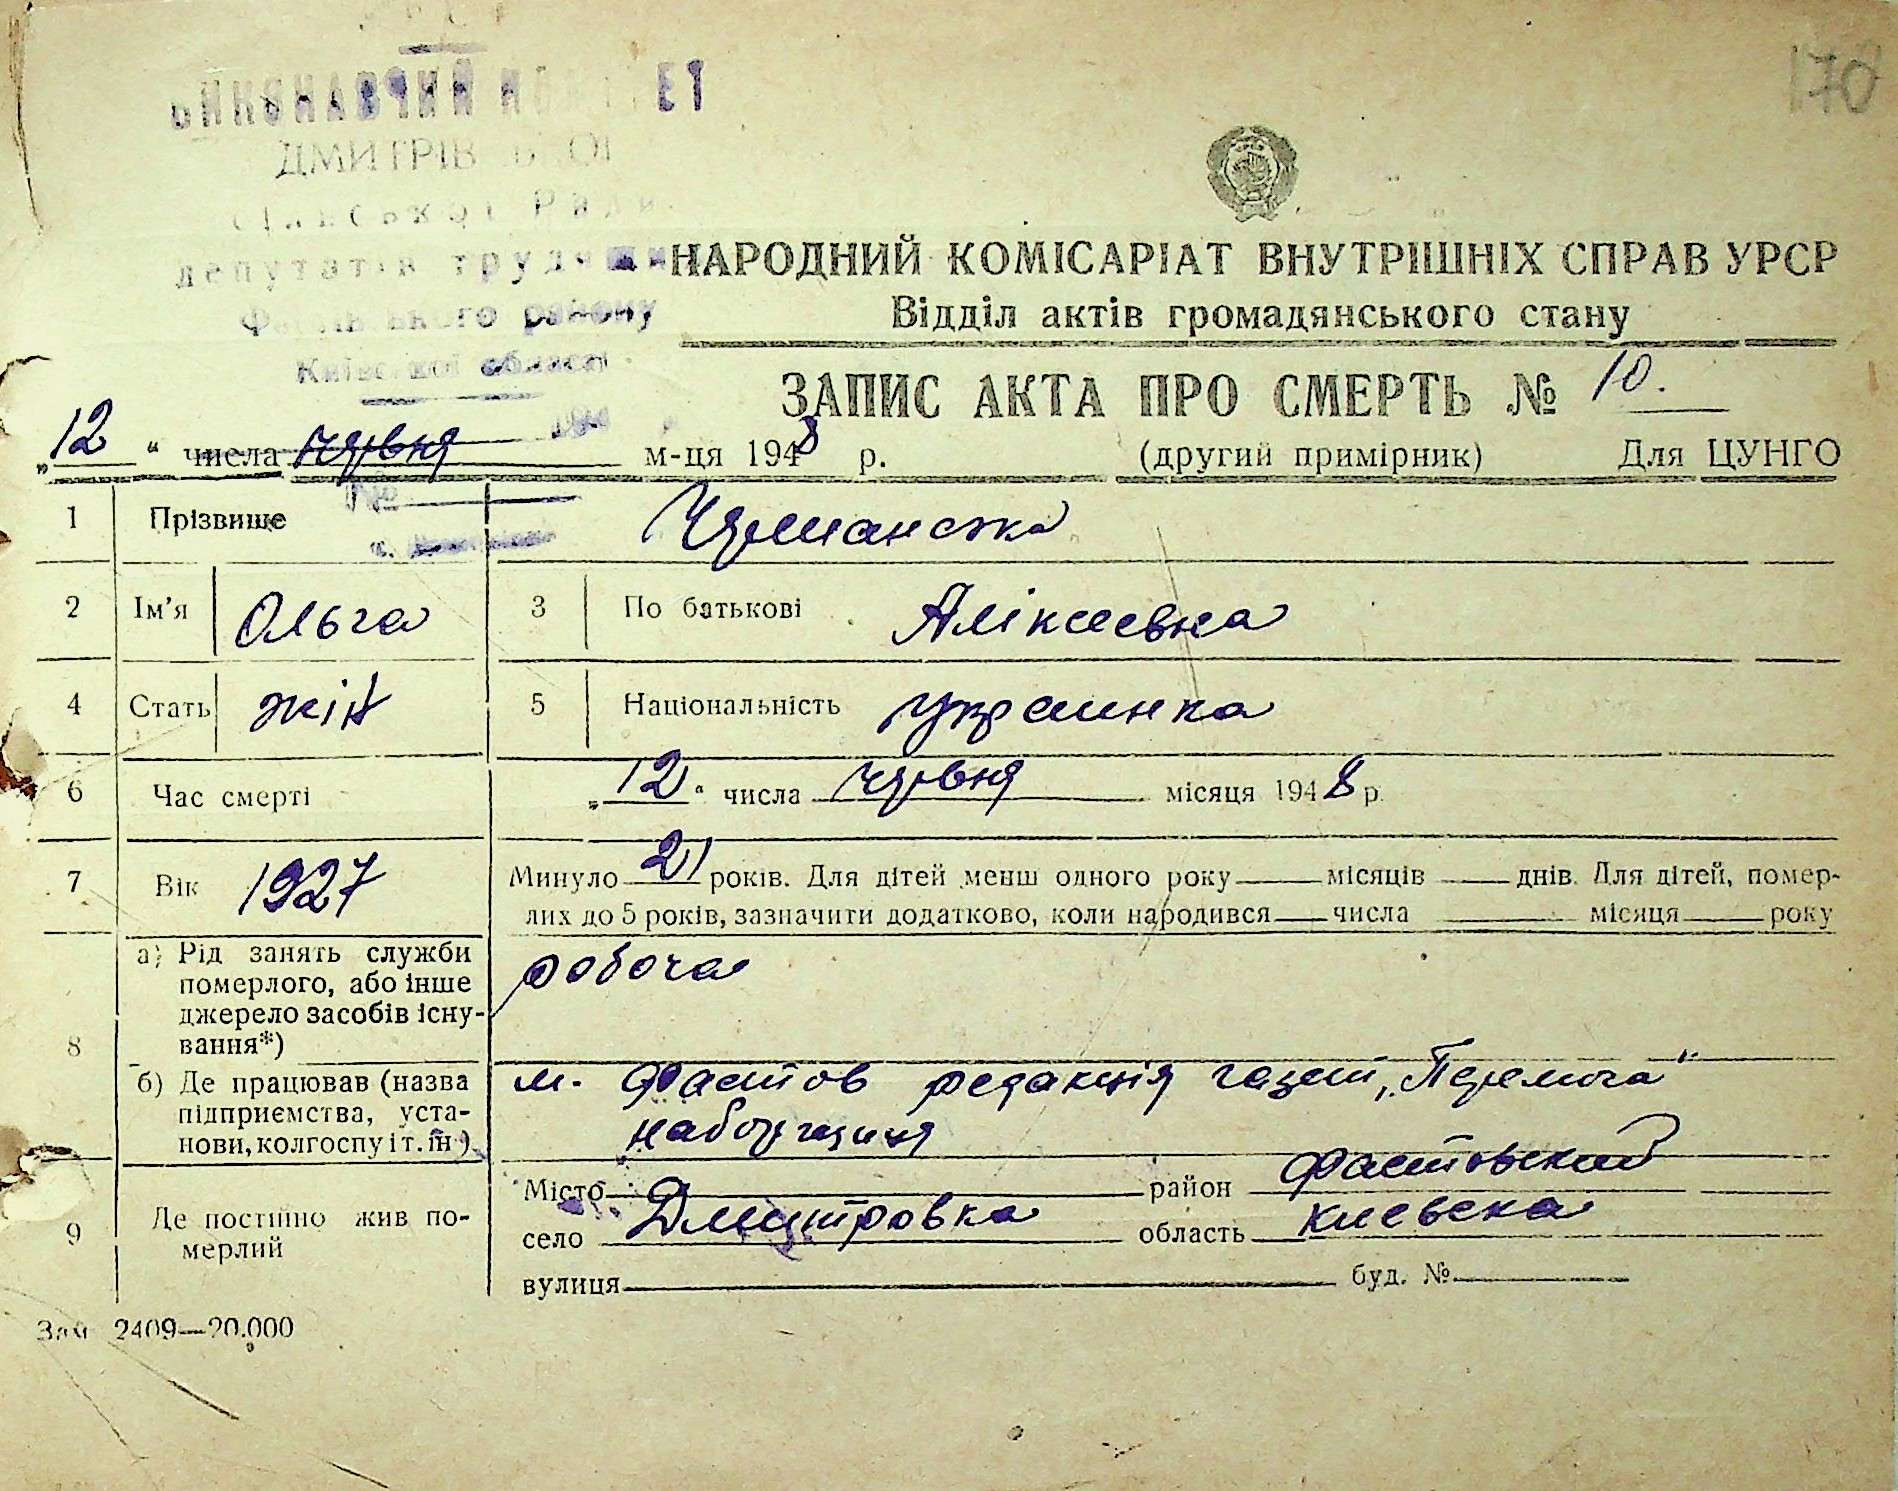 170
ДМИТРІВСЬКОЇ
сільської Ради
депутатів трудящих
Фастівського району
Київської області
НАРОДНИЙ КОМІСАРІАТ ВНУТРІШНІХ СПРАВ УРСР
Відділ актів громадянського стану
ЗАПИС АКТА ПРО СМЕРТЬ № 10.
„12“ числа червня м-ця 1948 р. (другий примірник) Для ЦУНГО
1 Прізвище Чярманська
2 Ім’я Ольга 3 По батькові Аліксеевна
4 Стать жін 5 Національність украинка
6 Час смерті „12“ числа червня місяця 1948 р.
7 Вік 1927 Минуло 21 років. Для дітей менш одного року місяців днів. Для дітей, помер-
лих до 5 років, зазначити додатково, коли народився числа місяця року
8 а) Рід занять служби
померлого, або інше
джерело засобів існу-
вання*) робоча
б) Де працював (назва
підприємства, уста-
нови, колгоспу і т. ін.)
м. Фастов редакція газети „Перемога“
наборщиця
9 Де постійно жив по-
мерлий
Місто район Фастовский
село Дмитровка область киевска
вулиця буд. №
Зам 2409—20.000